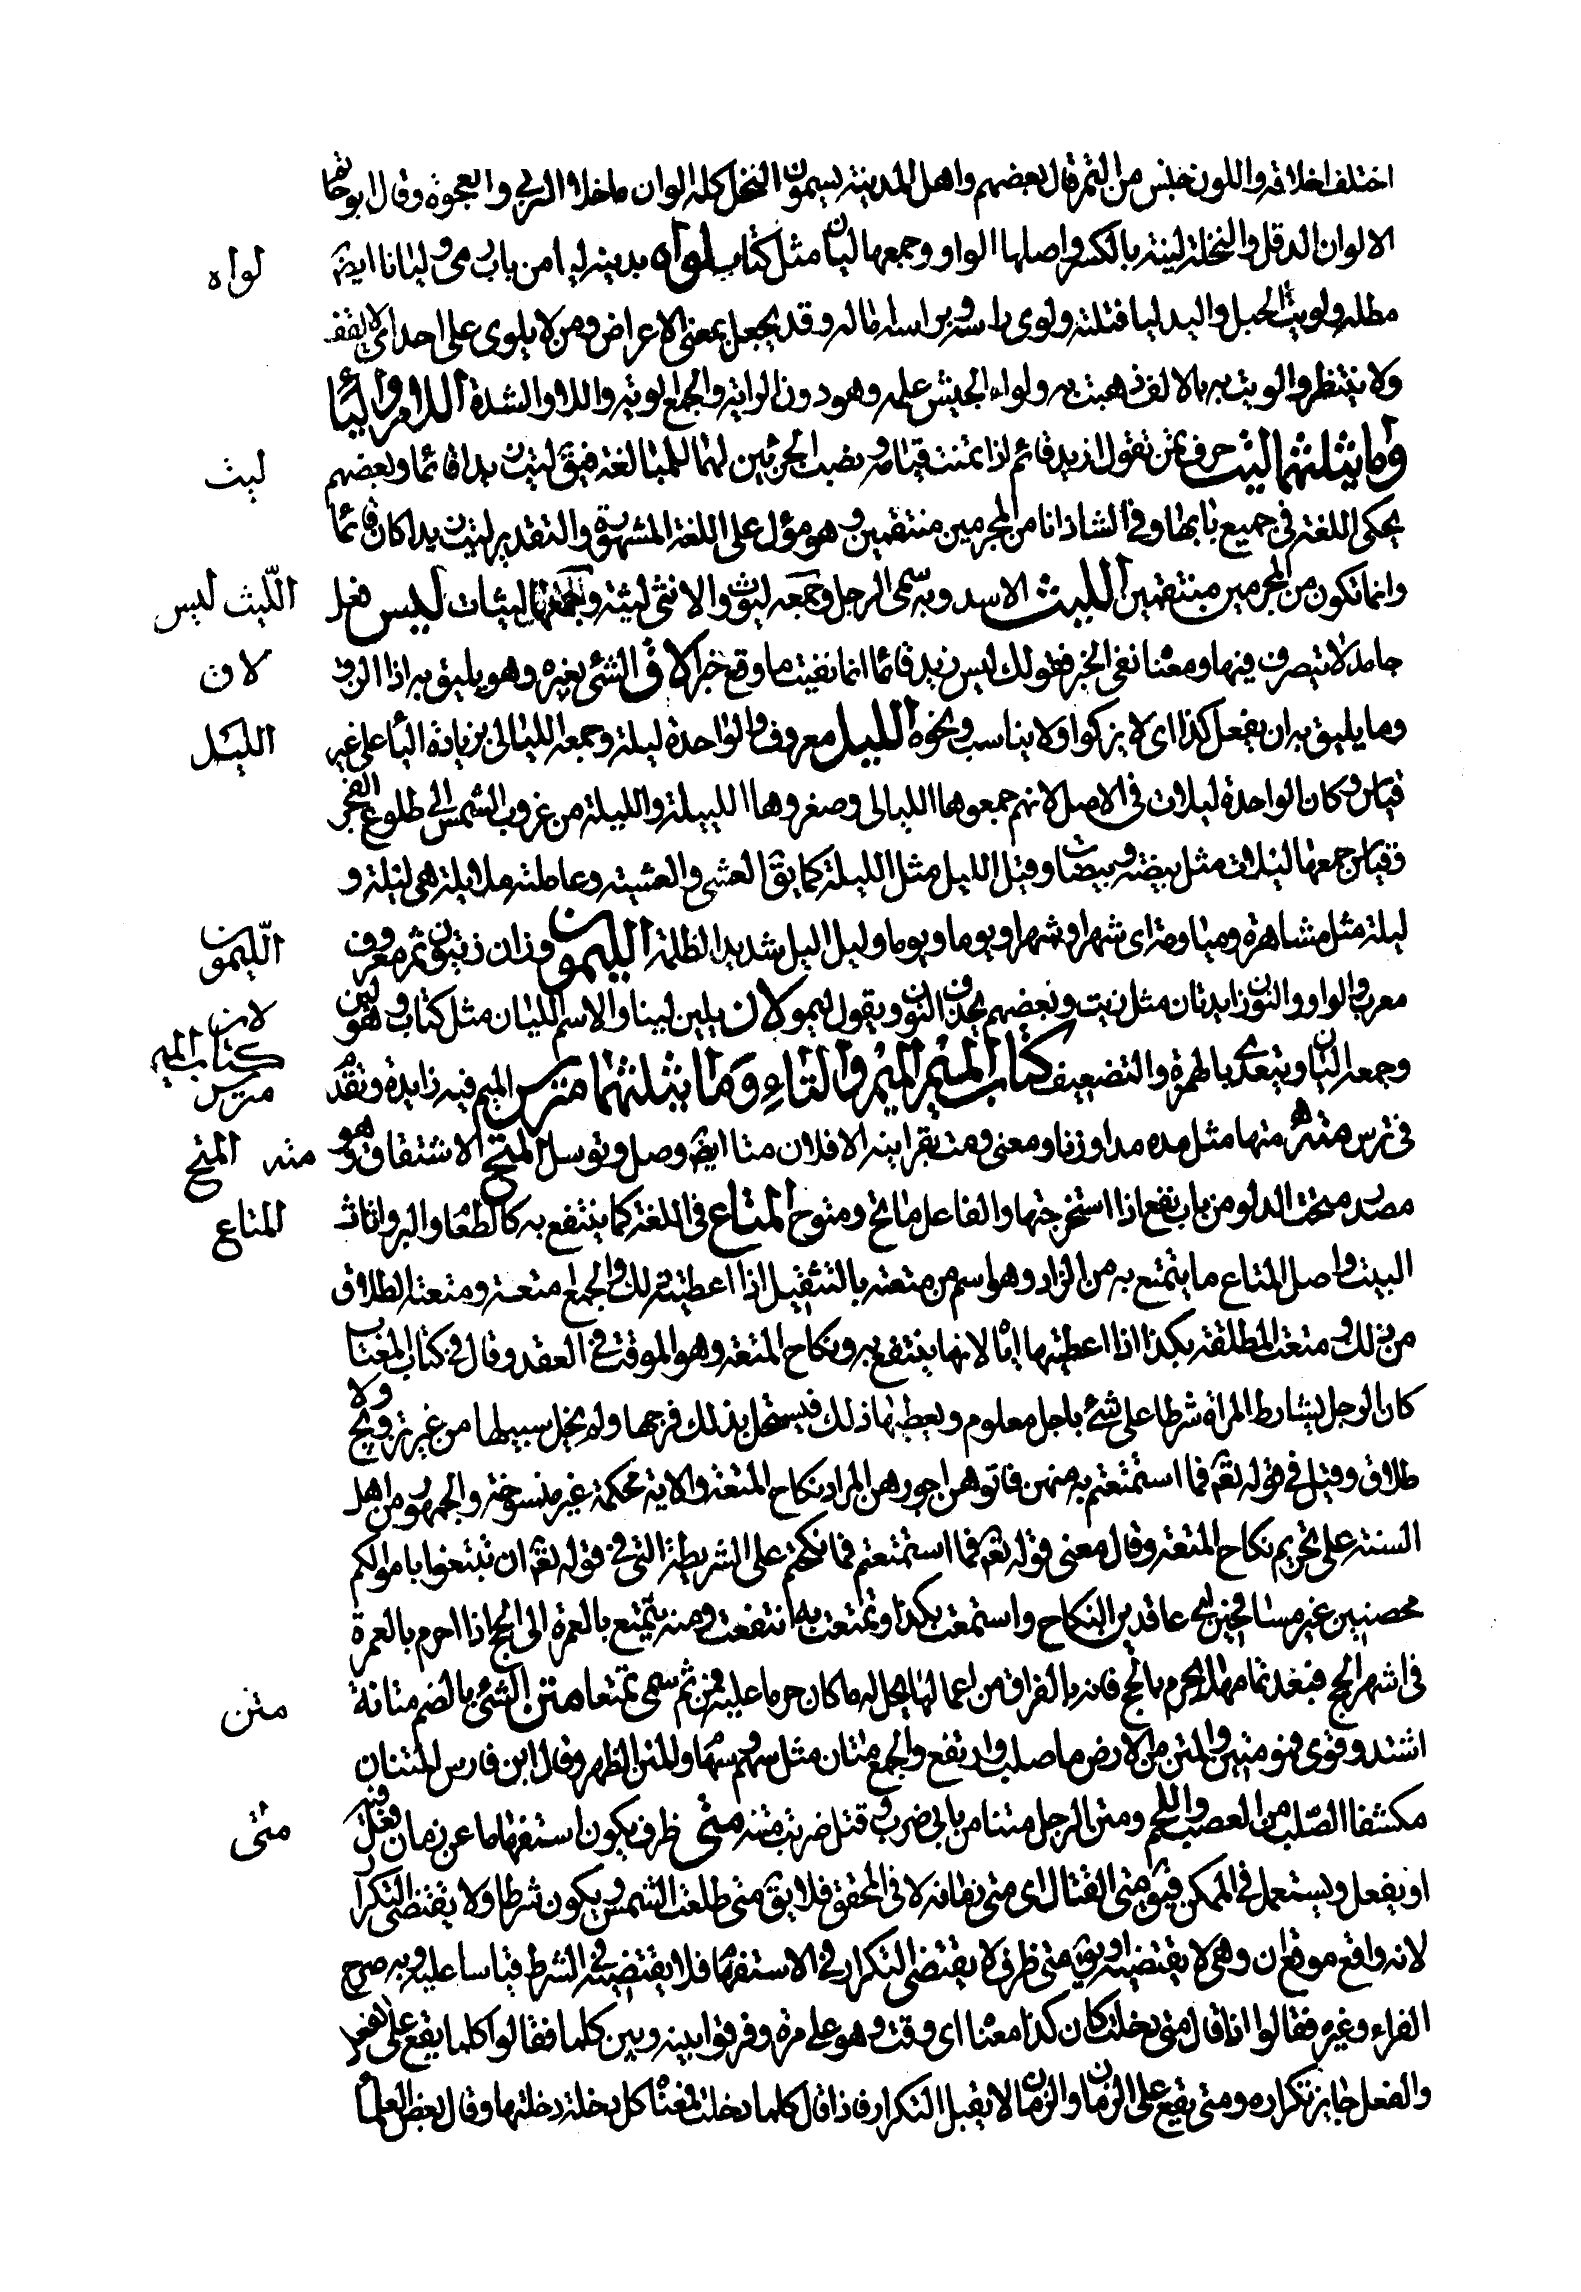 اختلف اخلاقه واللون جنس من التمر قال بعضهم واهل المدينة يسمون النخل كله الوان ما خلا البرني والعجوة وقال ابو حاتم
الالوان الدقل والنخلة لينة بالكسر واصلها الواو وجمعها ليان مثل كتاب لواه بدينه ليا من باب رمى وليانا ايضا
لواه
مطله ولويت الحبل واليد ليا فتلته ولوى راسه وبراسه اماله وقد يجعل بمعنى الاعراض ومن لا يلوى على احد اى لا يقف
ولا ينتظر والويت به بالالف ذهبت به ولواء الجيش علمه وهو دون الراية والجمع الوية واللاوا الشدة اللام والياء
وما يثلثهما ليت حرف تمن تقول ليت زيد قائم اذا تمنيت قيامه ونصب الجزئين لها للمبالغة فيق ليت زيدا قائما وبعضهم
ليت
يحكى اللغة فى جميع بابها وفى الشاذ انا من المجرمين منتقمين وهو مؤل على اللغة المشهورة والتقدير ليت زيدا كان قائما
وانما تكون من المجرمين منتقمين الليث الاسد وبه سمى الرجل وجمعه ليوث والانثى ليثة وجمعها ليثات ليس فعل
الليث ليس
جامد لا يتصرف فيها ومعناه نفى الخبر فقولك ليس زيد قائما انما نفيت ما وقع خبرا لاق الشئ بغيره وهو يليق به اذا لزق
لاق
وما يليق به ان يفعل كذا اى لا يزكوا ولا يناسب ونحوه الليل معروف والواحدة ليلة وجمعه الليالى بزيادة الياء على غير
الليل
قياس وكان الواحدة ليلات فى الاصل لانهم جمعوها الليالى وصغروها اللييلة والليلة من غروب الشمس الى طلوع الفجر
وقياس جمعها ليلات مثل بيضة وبيضات وقيل الليل مثل الليلة كما يق العشى والعشية وعاملته ملايلة هى ليلة و
ليلة مثل مشاهرة ومياومة اى شهرا وشهرا ويوما ويوما وليل اليل شديد الظلمة الليمون وزان زيتون ثمر معروف
الليمون
معرب والواو والنون زايدتان مثل زيت وبعضهم يحذف النون ويقول ليمو لان يلين لينا والاسم الليان مثل كتاب وهو لين
لان
وجمعه ليان ويتعدى بالهمزة والتضعيف كتاب الميم الميم والتاء وما يثلثهما مترس الميم فيه زايدة وتقدم
كتاب الميم
مترس
فى ترس مته متها مثل مده مدا وزنا ومعنى ومت بقرابته الى فلان متا ايضا وصل وتوسل المتح الاستقاء وهو
مته المتح
مصدر متحت الدلو من باب نفع اذا استخرجتها والفاعل ماتح ومتوح المتاع فى اللغة كلما ينتفع به كالطعام والبر واثاث
المتاع
البيت واصل المتاع ما يتمتع به من الزاد وهو اسم من متعته بالتثقيل اذا اعطيته ذلك والجمع امتعة ومتعة الطلاق
من ذلك ومتعت المطلقة بكذا اذا اعطيتها اياه لانها ينتفع به ونكاح المتعة هو الموقت فى العقد وقال فى كتاب العباب
كان الرجل يشارط المراة شرطا على شئ باجل معلوم ويعطيها ذلك فيستحل بذلك فرجها ولم يخل سبيلها من غير تزويج ولا
طلاق وقيل فى قوله تعم فما استمتعتم به منهن فاتوهن اجورهن المراد نكاح المتعة والاية محكمة غير منسوخة والجمهور من اهل
السنة على تحريم نكاح المتعة وقال معنى قوله تعم فما استمتعتم فما نكحتم على الشريطة التى فى قوله تعم ان تبتغوا باموالكم
محصنين غير مسافحين اى عاقدين النكاح واستمعت بكذا وتمتعت به انتفعت ومنه يتمتع بالعمرة الى الحج اذا احرم بالعمرة
فى اشهر الحج فبعد تمامها يحرم بالحج فانه بالفراق من اعمالها يحل له ما كان حرما عليه فمن ثم سمى تمتعا متن الشئ بالضم متانة
متن
اشتد وقوى فهو متين والمتن من الارض ما صلب وارتفع والجمع متان مثل سهم وسهام والمتن الظهر وقال ابن فارس المتنان
مكتنفا الصلب من العصب واللحم ومتن الرجل متنا من بابى ضرب وقتل ضربت متنه متى ظرف يكون استفهاما عن زمان فعل فيه
متى
او يفعل ويستعمل فى الممكن فيق متى القتال اى متى زمانه لا فى المحقق فلا يق متى طلعت الشمس ويكون شرطا ولا يقتضى التكرار
لانه واقع موقع ان وهى لا يقتضيه او يق متى ظرف لا يقتضى التكرار فى الاستفهام فلا يقتضيه فى الشرط قياسا عليه وبه صرح
الفراء وغيره فقالوا اذا قال متى دخلت كان كذا معناه اى وقت وهو على مرة وفرقوا بينه وبين كلما فقالوا كلما يقع على الفعل
والفعل جايز تكراره ومتى يقع على الزمان والزمان لا يقبل التكرار فاذا قال كلما دخلت فمعناه كل دخلة دخلتها وقال بعض العلماء